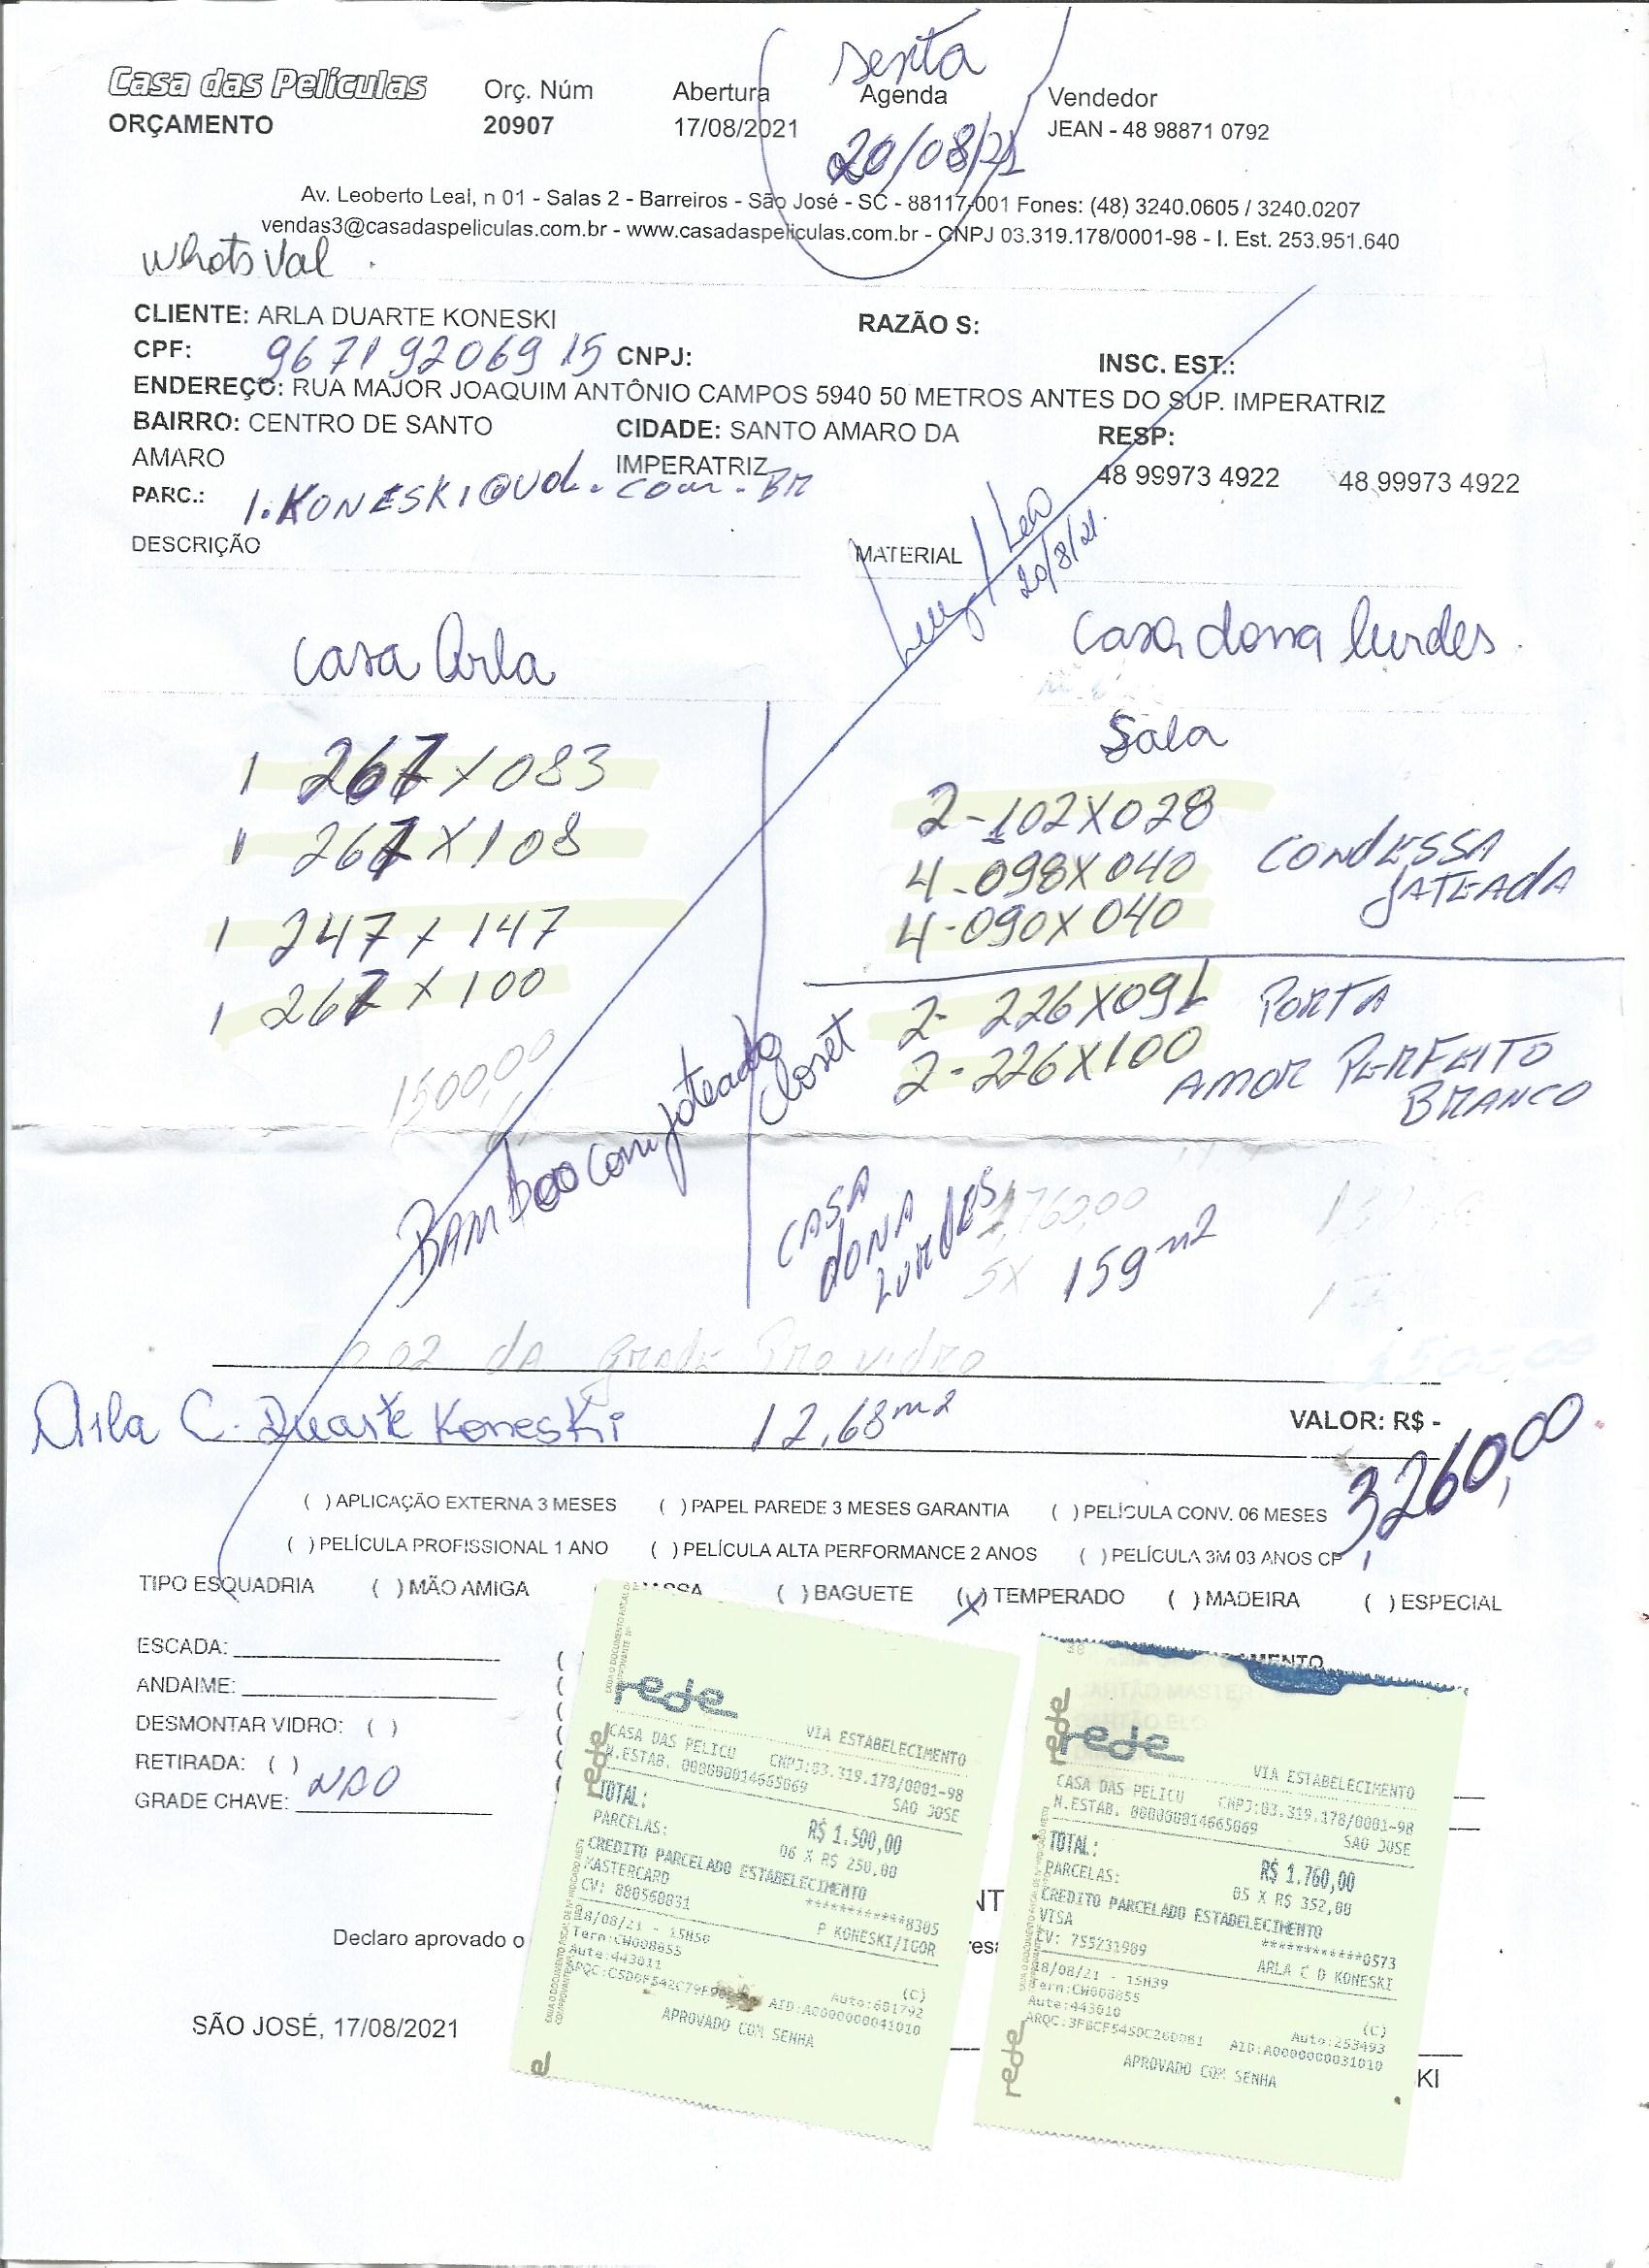 sexta
Casa das Películas Orç. Núm Abertura Agenda Vendedor
ORÇAMENTO 20907 17/08/2021 20/08/21 JEAN - 48 98871 0792
Av. Leoberto Leal, n 01 - Salas 2 - Barreiros - São José - SC - 88117-001 Fones: (48) 3240.0605 / 3240.0207
vendas3@casadaspeliculas.com.br - www.casadaspeliculas.com.br - CNPJ 03.319.178/0001-98 - I. Est. 253.951.640
Whats Val.
CLIENTE: ARLA DUARTE KONESKI RAZÃO S:
CPF: 967192069 15 CNPJ: INSC. EST.:
ENDEREÇO: RUA MAJOR JOAQUIM ANTÔNIO CAMPOS 5940 50 METROS ANTES DO SUP. IMPERATRIZ
BAIRRO: CENTRO DE SANTO CIDADE: SANTO AMARO DA RESP:
AMARO IMPERATRIZ 48 99973 4922 48 99973 4922
PARC.: I.KONESKI@UOL.COM.BR
DESCRIÇÃO MATERIAL
Leo
20/8/21.
Casa Arla
1 267 x 083
1 267 x 108
1 247 x 147
1 267 x 100
1500,00
BAMBOO com jateado
Casa dona lurdes.
Sala
2 - 102X028
4 - 098X040
4 - 090X040
CONDESSA
JATEADA
closet
2 - 226X091 PORTA
2 - 226X100
AMOR PERFEITO
BRANCO
CASA
DONA
LURDES
1,760,00
5X
159 m2
da grade pro vidro
1500,00
Arla C. Duarte Koneski 12,68 m2 VALOR: R$ -
3,260,00
( ) APLICAÇÃO EXTERNA 3 MESES ( ) PAPEL PAREDE 3 MESES GARANTIA ( ) PELÍCULA CONV. 06 MESES
( ) PELÍCULA PROFISSIONAL 1 ANO ( ) PELÍCULA ALTA PERFORMANCE 2 ANOS ( ) PELÍCULA 3M 03 ANOS CP
TIPO ESQUADRIA ( ) MÃO AMIGA ( ) BAGUETE (X) TEMPERADO ( ) MADEIRA ( ) ESPECIAL
ESCADA:
ANDAIME:
DESMONTAR VIDRO: ( )
RETIRADA: ( )
GRADE CHAVE: NAO
rede
VIA ESTABELECIMENTO
CASA DAS PELICU CNPJ:03.319.178/0001-98
N.ESTAB. 000000014665069 SAO JOSE
TOTAL: R$ 1.500,00
PARCELAS: 06 X R$ 250,00
CREDITO PARCELADO ESTABELECIMENTO
MASTERCARD ************8305
CV: 880560831 P KONESKI/IGOR
18/08/21 - 15H50
Term:CW008655 (C)
Aute:443011 Auto:601792
AID:A0000000041010
APROVADO COM SENHA
rede
rede
CARTÃO MASTER
CARTÃO ELO
rede
VIA ESTABELECIMENTO
CASA DAS PELICU CNPJ:03.319.178/0001-98
N.ESTAB. 000000014665069 SAO JOSE
TOTAL: R$ 1.760,00
PARCELAS: 05 X R$ 352,00
CREDITO PARCELADO ESTABELECIMENTO
VISA ************0573
CV: 755231909 ARLA C D KONESKI
18/08/21 - 15H39
Term:CW008655 (C)
Aute:443010 Auto:253493
AID:A0000000031010
APROVADO COM SENHA
rede
rede
Declaro aprovado o
SÃO JOSÉ, 17/08/2021
KI